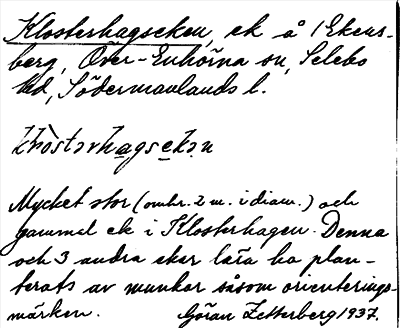 Klosterhagseken, ek å 1 Ekens-
berg, Över-Enhörna sn, Selebo
hd, Södermanlands l.
klòstərhagsekən
Mycket stor (omkr. 2 m. i diam.) och
gammal ek i Klosterhagen. Denna
och 3 andra ekar lära ha plan-
terats av munkar såsom orienterings-
märken. Göran Zetterberg 1937.